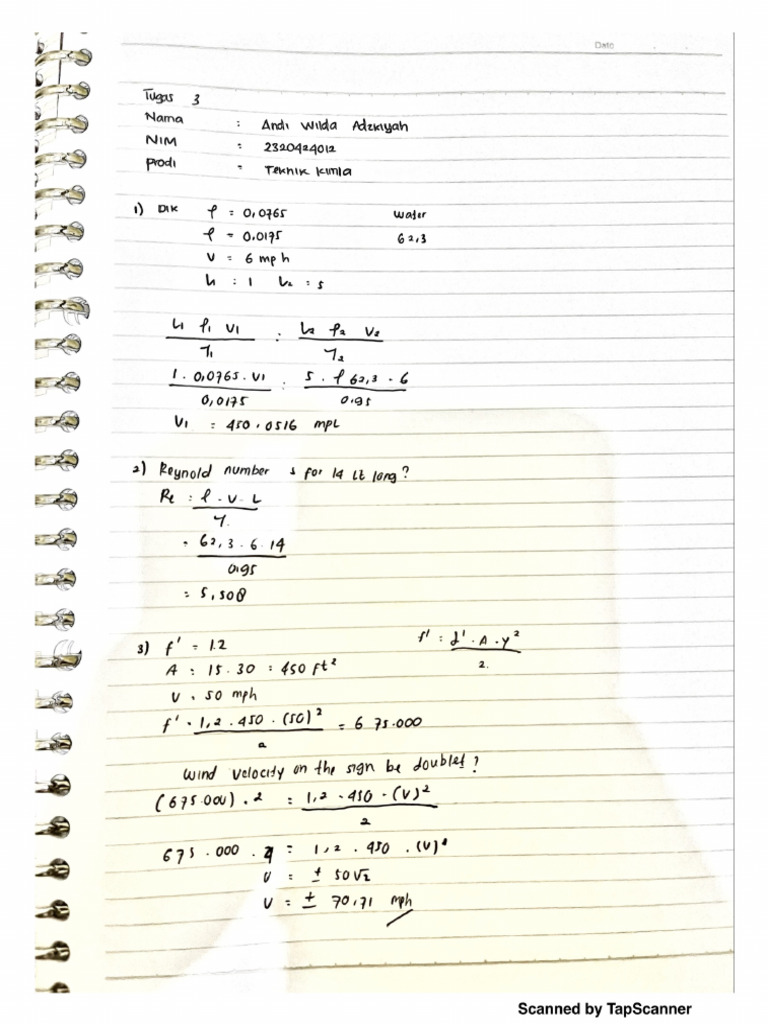 Date
Tugas 3
Nama : Andi Wilda Adzkiyah
NIM : 2320424012
prodi : Teknik Kimia
1) Dik ρ = 0,0765 water
ρ = 0.0175 62,3
V = 6 mph
L1 : 1 L2 = 5
L1 ρ1 V1 : L2 ρ2 V2
η1 η2
1 . 0,0765 . V1 : 5 . ρ 62,3 . 6
0,0175 0.95
V1 = 450.0516 mpL
2) Reynold number s for 14 Lt long?
Re : ρ . V . L
η.
= 62,3 . 6 . 14
0.95
= 5,508
3) f' = 1.2 f' : ρ' . A . V²
A : 15 . 30 = 450 ft² 2.
V = 50 mph
f' = 1,2 . 450 . (50)² = 675.000
2
Wind velocity on the sign be doubled?
(675.000) . 2 = 1,2 . 450 . (V)²
2
675.000 . 4 = 1,2 . 450 . (V)²
V = ± 50√2
V = ± 70,71 mph
Scanned by TapScanner